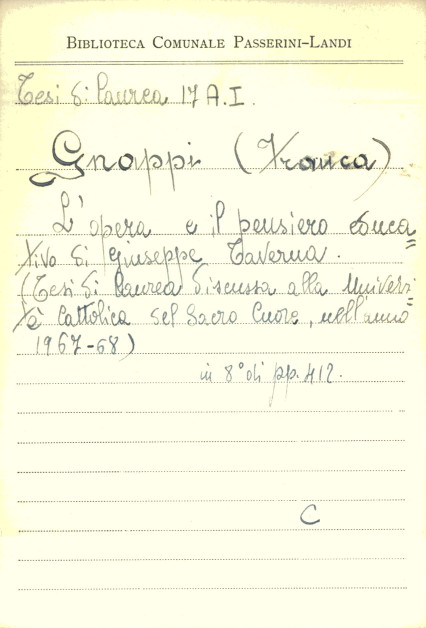 BIBLIOTECA COMUNALE PASSERINI-LANDI
Tesi di laurea 17 A.I.
Gnappi (Franca)
L'opera e il pensiero educa=
tivo di Giuseppe Taverna.
(Tesi di laurea discussa alla Universi=
tà Cattolica del Sacro Cuore, nell'anno
1967-68)
in 8° di pp. 412.
C